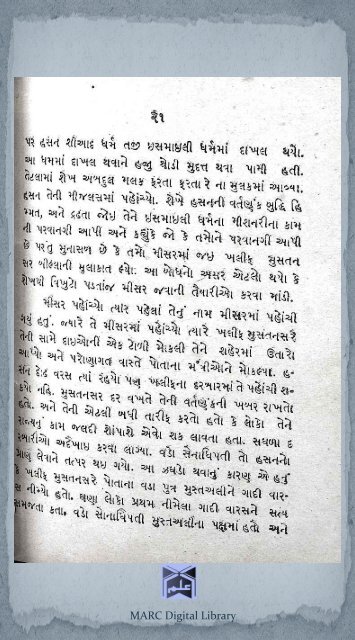 ૨૧
પર હસન શીઆદ ધર્મ તજી ઇસમાઇલી ધર્મમાં દાખલ થયો.
આ ધમમાં દાખલ થવાને હજી થોડી મુદત થવા પામી હતી.
તેટલામાં શેખ અબદુલ મલક ફરતા ફરતા રે ના મુલકમાં આવ્યા.
હસન તેની મીજલસમાં પહોંચ્યો. શેખે હસનની વર્તણુંક બુદ્ધિ હિ
મ્મત, અને દ્રઢતા જોઇ તેને ઇસમાઇલી ધર્મના મીશનરીના કામ
ની પરવાનગી આપી અને કહ્યું કે જો કે તમોને પરવાનગી આપી
છે પરંતુ મુનાસબ છે કે તમો મીસરમાં જઇ ખલીફ મુસતન
સર બીલ્લાની મુલાકાત લ્યો. આ બોધનો અસર એટલો થયો કે
શેખથી વિખુટો પડતાંજ મીસર જવાની તૈયારીઓ કરવા માંડી.
મીસર પહોંચ્યો ત્યાર પહેલાં તેનું નામ મીસરમાં પહોંચી
ગયું હતું. જ્યારે તે મીસરમાં પહોંચ્યો ત્યારે ખલીફ મુસતનસરે
તેની સામે દાઇઓની એક ટોળી મોકલી તેને શહેરમાં ઉતારો
આપ્યો અને પરોણાગત વાસ્તે પોતાના મંત્રીઓને મોકલ્યા. હ-
સન દોઢ વરસ ત્યાં રહ્યો પણ ખલીફના દરબારમાં તે પહોંચી શ-
ક્યો નહિ. મુસતનસર દર વખતે તેની વર્તણુંકની ખબર રાખતો
હતો. અને તેની એટલી બધી તારીફ કરતો હતો કે લોકો તેને
રાજ્યનું કામ જલદી શોંપાશે એવો શક લાવતા હતા. સઘળા દ
રબારીઓ અદેખાઇ કરવા લાગ્યા. વડો સૈનાધિપતી તો હસનનો
પ્રાણ લેવાને તત્પર થઇ ગયો. આ ઝઘડો થવાનું કારણ એ હતું
કે ખલીફ મુસતનસરે પોતાના વડા પુત્ર મુસ્તઅલીને ગાદી વાર-
સ નીમ્યો હતો. ઘણા લોકો પ્રથમ નીમેલા ગાદી વારસને સત્ય
સમજતા હતા. વડો સેનાધિપતી મુસ્તઅલીના પક્ષમાં હતો અને
علم
MARC Digital Library